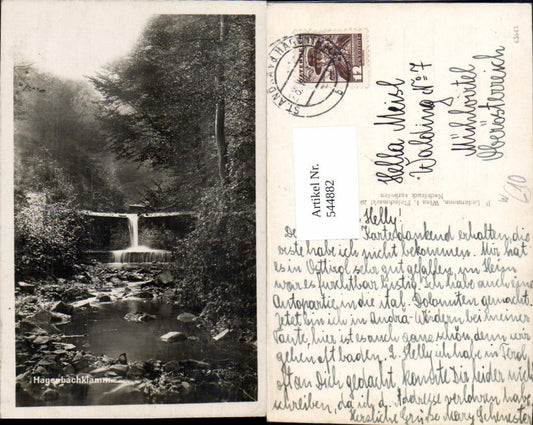 Hagenbachklamm
ST. ANDRÄ
Hella Maisl
Walding No 7
Mühlviertel
Oberösterreich
P. Ledermann, Wien I, Fleischmarkt 20
Nachdruck verboten
Artikel Nr.
544882
Helly!
Kartedankend erhalten, die
erste habe ich nicht bekommen. Mir hat
es in Osttirol sehr gut gefallen, im Heim
war es furchtbar lustig. Ich habe auch eine
Autopartie in die ital. Dolomiten gemacht.
Jetzt bin ich in Andrä-Wördern bei meiner
Tante, hier ist es auch ganz schön, denn wir
gehen oft baden. L. Helly ich habe in Tirol
oft an Dich gedacht, konnte Dir leider nicht
schreiben, da ich d. Addresse verloren habe
Herzliche Grüsse Mary